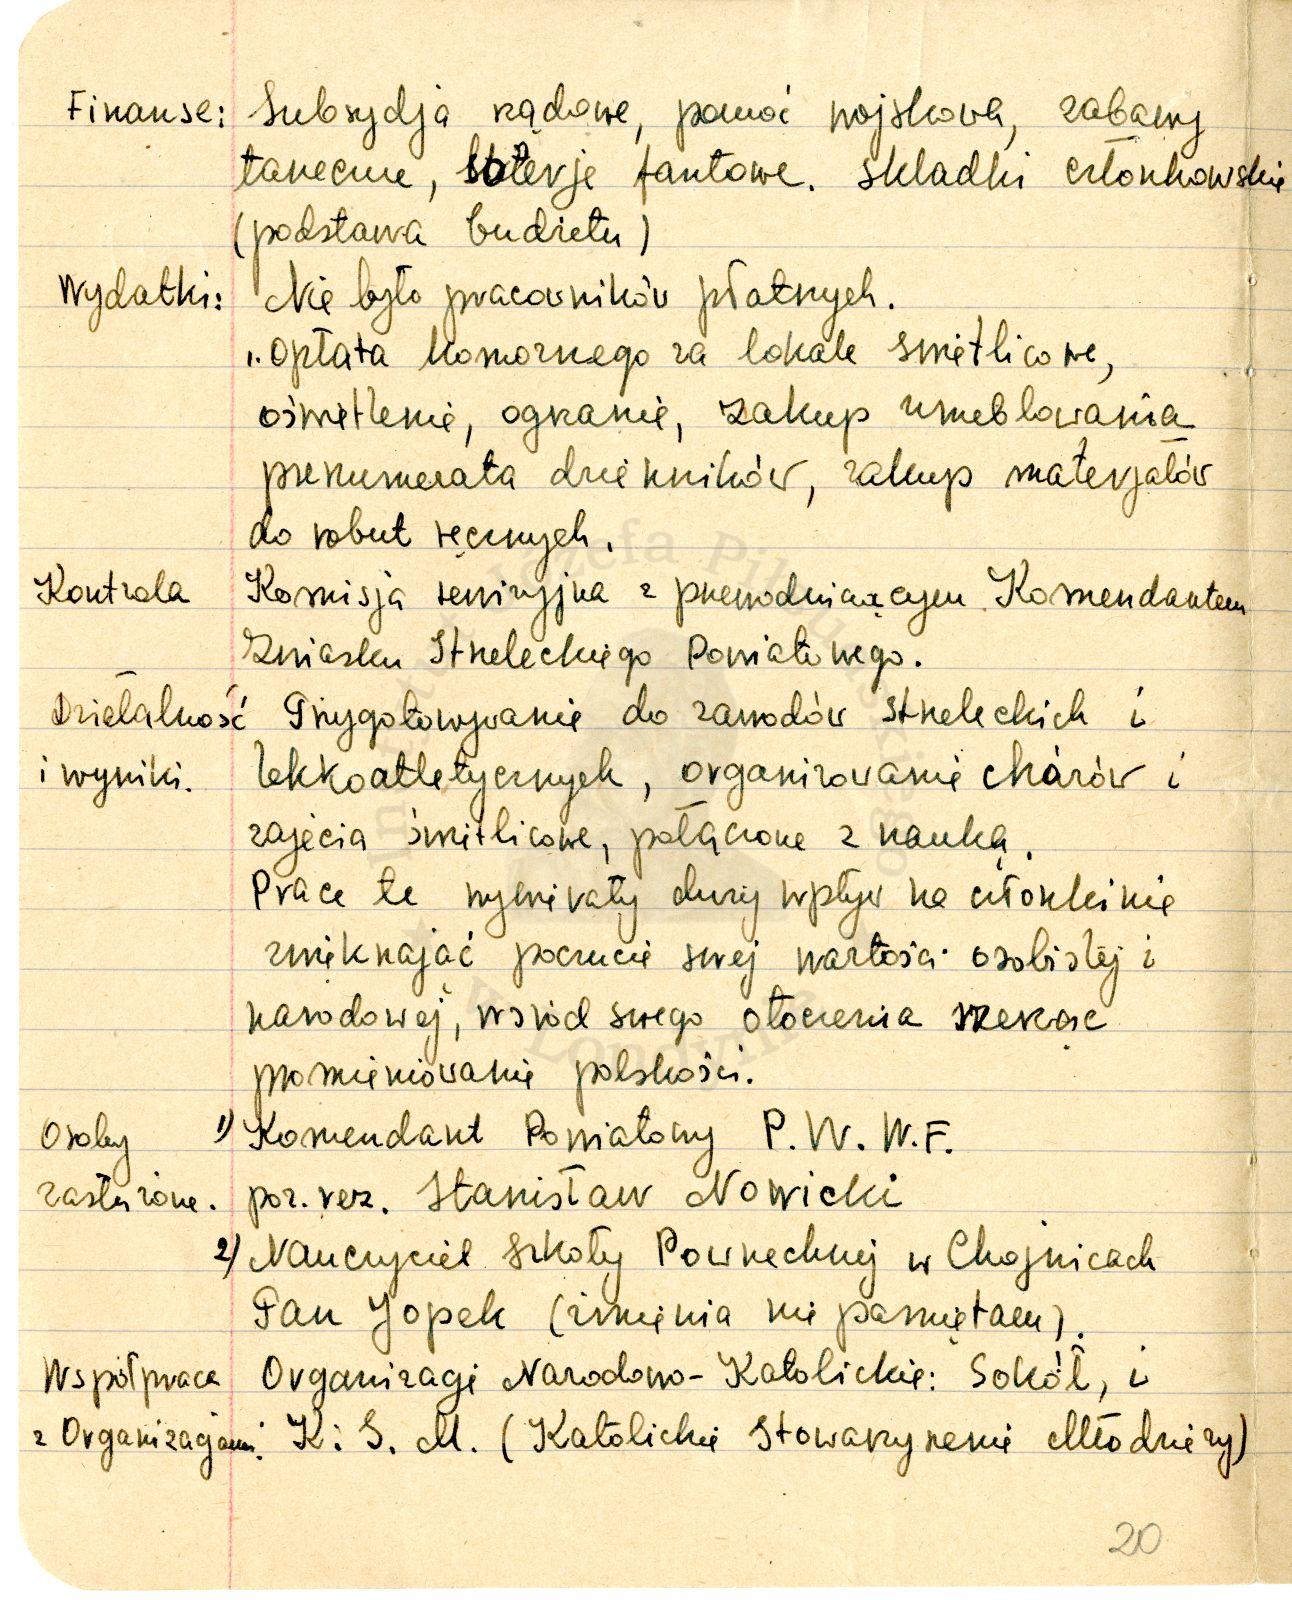 Finanse: Subsydja rządowe, pomoc wojskowa, zabawy
taneczne, loterje fantowe. składki członkowskie
(podstawa budżetu)
Wydatki: Nie było pracowników płatnych.
1. opłata komornego za lokale świetlicowe,
oświetlenie, ogrzanie, zakup umeblowania
prenumerata dzienników, zakup materjałów
do robut ręcznych.
Kontrola Komisja rewizyjna z przewodniczącym Komendantem
Związku Strzeleckiego Powiatowego.
Działalność Przygotowywanie do zawodów strzeleckich i
i wyniki. lekkoatletycznych, organizowanie chórów i
zajęcia świetlicowe, połączone z nauką.
Prace te wywierały duży wpływ na członkinie
zwiększając poczucie swej wartości osobistej i
narodowej, wśród swego otoczenia szerząc
promieniowanie polskości.
Osoby 1) Komendant Powiatowy P. W. W.F.
zasłużone. por. rez. Stanisław Nowicki
2) Nauczyciel Szkoły Powszechnej w Chojnicach
Pan Jopek (imienia nie pamiętam).
Współpraca Organizacje Narodowo-Katolickie: Sokół, i
z Organizacjami: K. S. M. (Katolickie Stowarzyszenie Młodzieży)
20
Instytut Józefa Piłsudskiego w Londynie